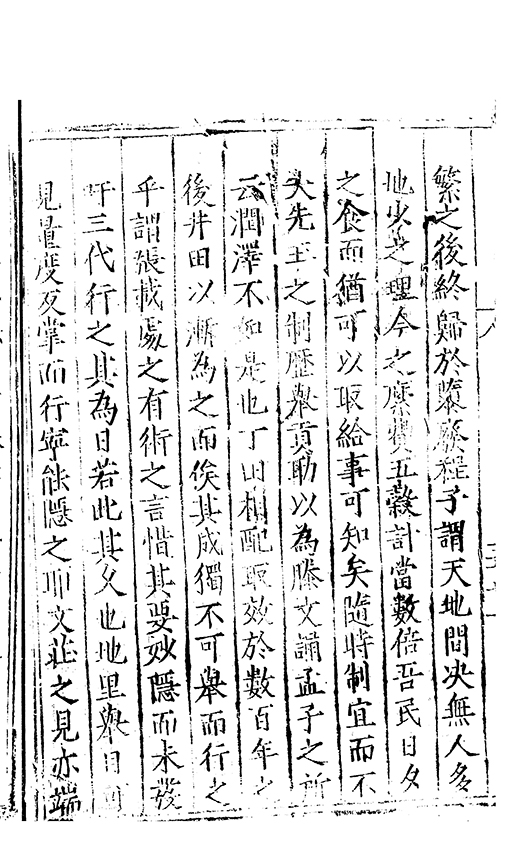 繁之後終歸於墮廢程子謂天地間决無人多
地少之理今之糜費五穀計當數倍吾民日夕
之食而猶可以取給事可知矣隨時制宜而不
失先王之制歷舉貢助以為滕文誦孟子之所
云潤澤不如是也丁田相配取效於數百年之
後井田以漸為之而俟其成獨不可舉而行之
乎謂張載處之有術之言惜其要妙隱而未發
吁三代行之其為日若此其久也地里舉目可
見量度反掌而行寧能隱之耶文莊之見亦端